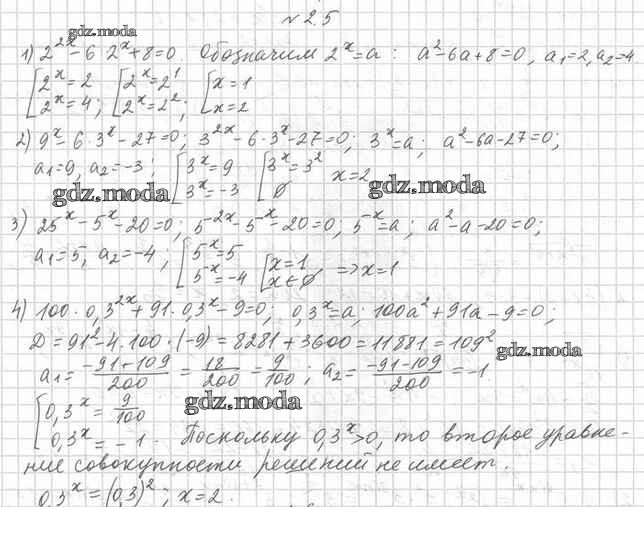 № 2.5
gdz.moda
1) 2^{2x} - 6·2^x + 8 = 0. Обозначим 2^x = a : a² - 6a + 8 = 0, a₁ = 2, a₂ = 4
[2^x = 2 [2^x = 2¹ [x = 1
2^x = 4; 2^x = 2²; x = 2
2) 9^x - 6·3^x - 27 = 0; 3^{2x} - 6·3^x - 27 = 0; 3^x = a; a² - 6a - 27 = 0;
a₁ = 9, a₂ = -3; [3^x = 9 [3^x = 3² x = 2
gdz.moda 3^x = -3 ∅ gdz.moda
3) 25^{-x} - 5^{-x} - 20 = 0; 5^{-2x} - 5^{-x} - 20 = 0; 5^{-x} = a; a² - a - 20 = 0;
a₁ = 5, a₂ = -4; [5^x = 5 [x = 1
5^x = -4 x ∈ ∅ => x = 1
4) 100·0,3^{2x} + 91·0,3^x - 9 = 0; 0,3^x = a; 100a² + 91a - 9 = 0;
D = 91² - 4·100·(-9) = 8281 + 3600 = 11881 = 109²
gdz.moda
a₁ = (-91+109)/200 = 18/200 = 9/100; a₂ = (-91-109)/200 = -1
gdz.moda
[0,3^x = 9/100
0,3^x = -1. Поскольку 0,3^x > 0, то второе уравне-
ние совокупности решений не имеет.
0,3^x = (0,3)²; x = 2.